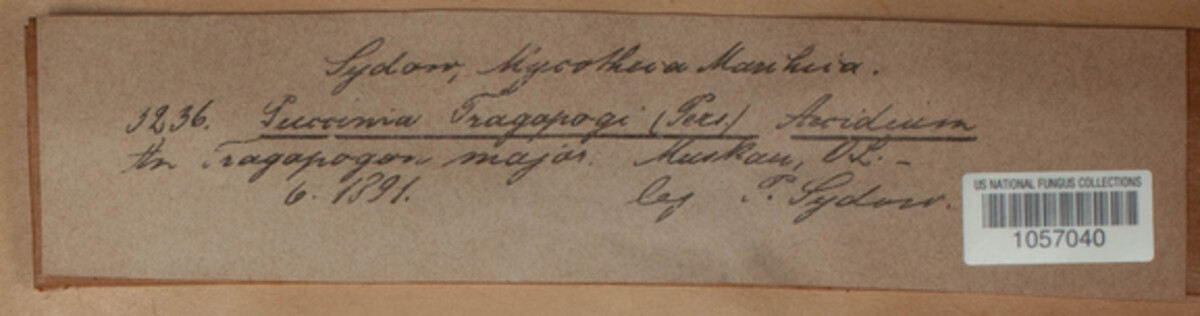 Sydow, Mycotheca Marchica.
3236. Puccinia Tragopogi (Pers.) Aecidium
In Tragopogon major. Muskau, O.L. -
6. 1891. leg P. Sydow.
US NATIONAL FUNGUS COLLECTIONS
1057040